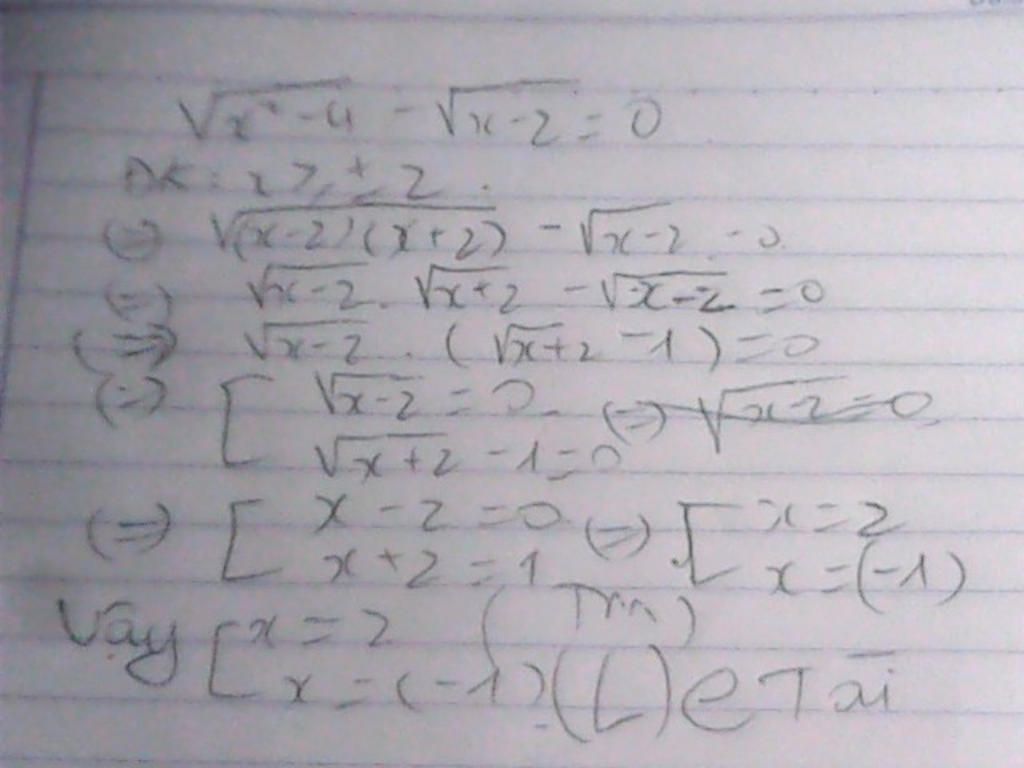 √x²-4 - √x-2 = 0
ĐK: x ≥ ± 2.
(=) √(x-2)(x+2) - √x-2 = 0
(=) √x-2 . √x+2 - √x-2 = 0
(=) √x-2 . (√x+2 - 1) = 0
(=) [ √x-2 = 0 (=) √x-2 = 0
√x+2 - 1 = 0
(=) [ x - 2 = 0 (=) [ x = 2
x + 2 = 1 x = (-1)
Vậy [ x = 2 (Tm)
x = (-1) (L)